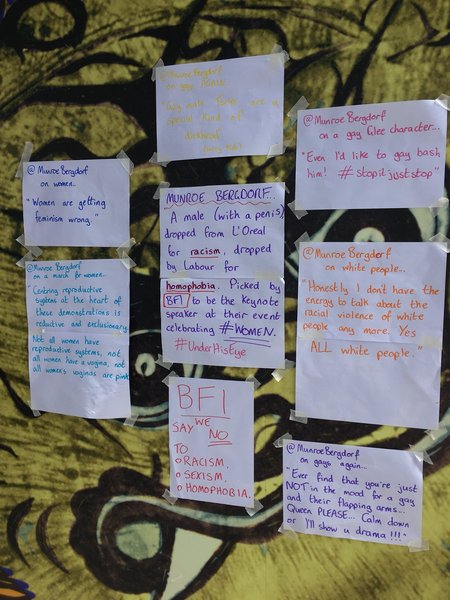 @MunroeBergdorf
on gay
"Gay male Tories are a
special kind of
dickhead"
@MunroeBergdorf
on women..
"Women are getting
feminism wrong."
MUNROE BERGDORF...
"A male (with a penis)
dropped from L'Oreal
for racism, dropped
by Labour for
homophobia. Picked by
BFI to be the Keynote
speaker at their event
celebrating #WOMEN.
#UnderHisEye
@Munroe Bergdorf
on a gay Glee character...
"Even I'd like to gay bash
him! #stopitjuststop"
@MunroeBergdorf
on a march for women...
"Centring reproductive
systems at the heart of
these demonstrations is
reductive and exclusionary.
Not all women have
reproductive systems, not
all women have a vagina, not
all women's vaginas are pink
@MunroeBergdorf
on white people...
"Honestly I don't have the
energy to talk about the
racial violence of white
people any more. Yes
ALL white people."
BFI
WE
SAY NO
TO
RACISM.
SEXISM.
HOMOPHOBIA.
@MunroeBergdorf
on gays again...
"Ever find that you're just
NOT in the mood for a gay
and their flapping arms...
Queen PLEASE... Calm down
or I'll show u drama!!!"